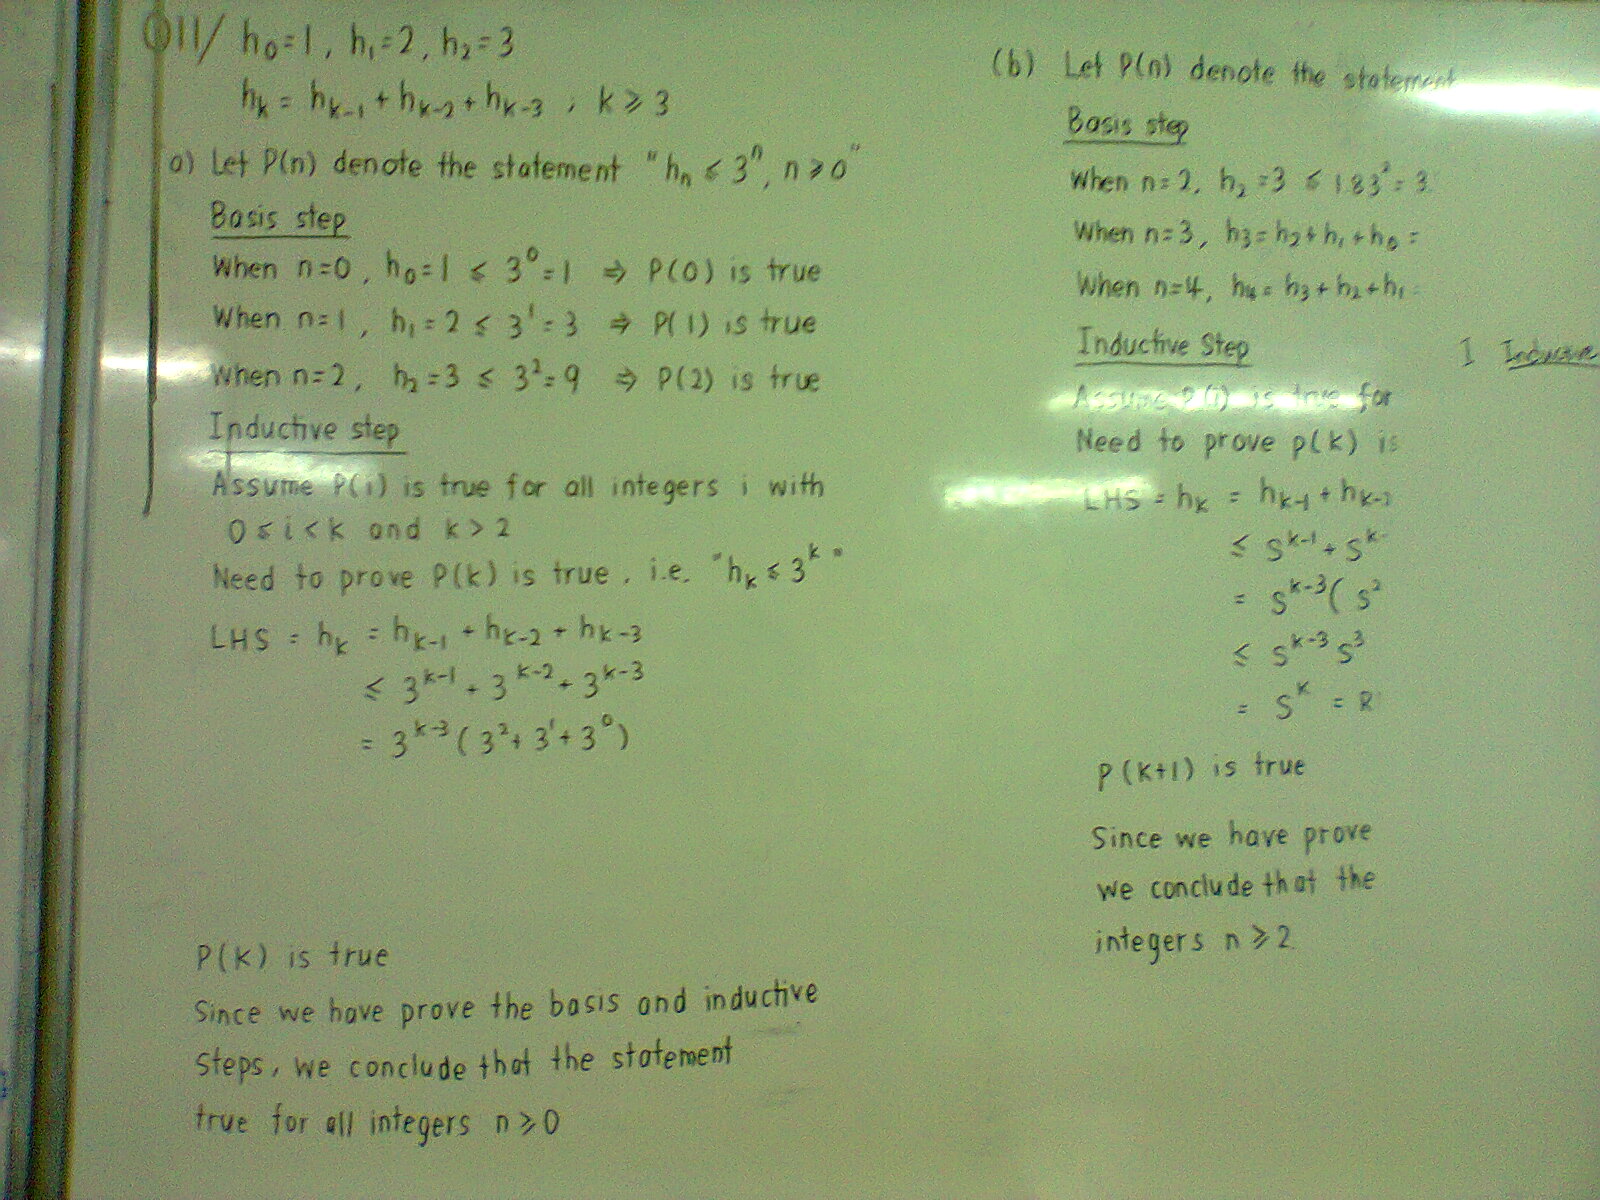 Q11/ h₀=1, h₁=2, h₂=3
hₖ = hₖ₋₁ + hₖ₋₂ + hₖ₋₃ , k ≥ 3
a) Let P(n) denote the statement "hₙ ≤ 3ⁿ, n ≥ 0"
Basis step
When n=0, h₀=1 ≤ 3⁰=1 ⇒ P(0) is true
When n=1, h₁=2 ≤ 3¹=3 ⇒ P(1) is true
When n=2, h₂=3 ≤ 3²=9 ⇒ P(2) is true
Inductive step
Assume P(i) is true for all integers i with
0 ≤ i < k and k > 2
Need to prove P(k) is true, i.e. "hₖ ≤ 3ᵏ"
LHS = hₖ = hₖ₋₁ + hₖ₋₂ + hₖ₋₃
≤ 3ᵏ⁻¹ + 3ᵏ⁻² + 3ᵏ⁻³
= 3ᵏ⁻³(3² + 3¹ + 3⁰)
P(k) is true
Since we have prove the basis and inductive
steps, we conclude that the statement
true for all integers n ≥ 0
(b) Let P(n) denote the statement
Basis step
When n=2, h₂=3 ≤ 1.83²=3.
When n=3, h₃=h₂+h₁+h₀=
When n=4, h₄=h₃+h₂+h₁=
Inductive Step
I Inductive
Assume P(i) is true for
Need to prove p(k) is
LHS = hₖ = hₖ₋₁ + hₖ₋₂
≤ sᵏ⁻¹ + sᵏ⁻
= sᵏ⁻³( s²
≤ sᵏ⁻³ s³
= sᵏ = R
P(k+1) is true
Since we have prove
we conclude that the
integers n ≥ 2.